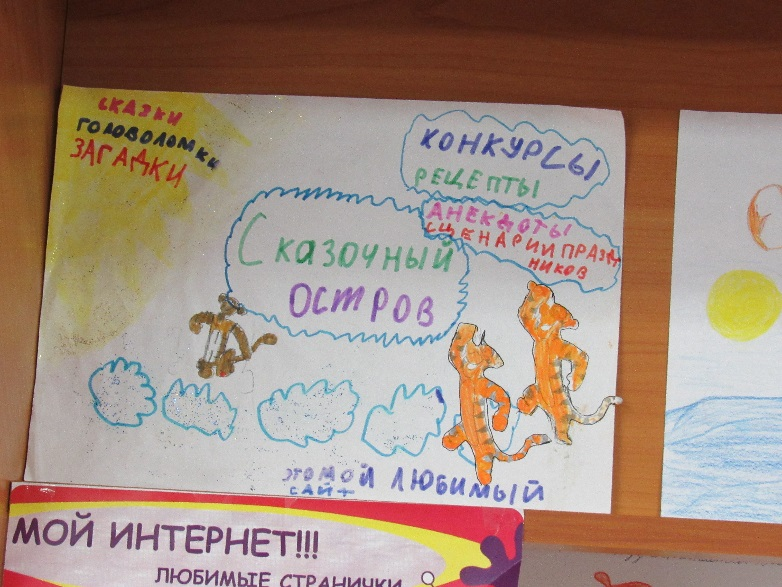 СКАЗКИ
ГОЛОВОЛОМКИ
ЗАГАДКИ
КОНКУРСЫ
РЕЦЕПТЫ
АНЕКДОТЫ
СЦЕНАРИИ ПРАЗД
НИКОВ
Сказочный
ОСТРОВ
ЭТО МОЙ ЛЮБИМЫЙ
САЙТ
МОЙ ИНТЕРНЕТ!!!
ЛЮБИМЫЕ СТРАНИЧКИ